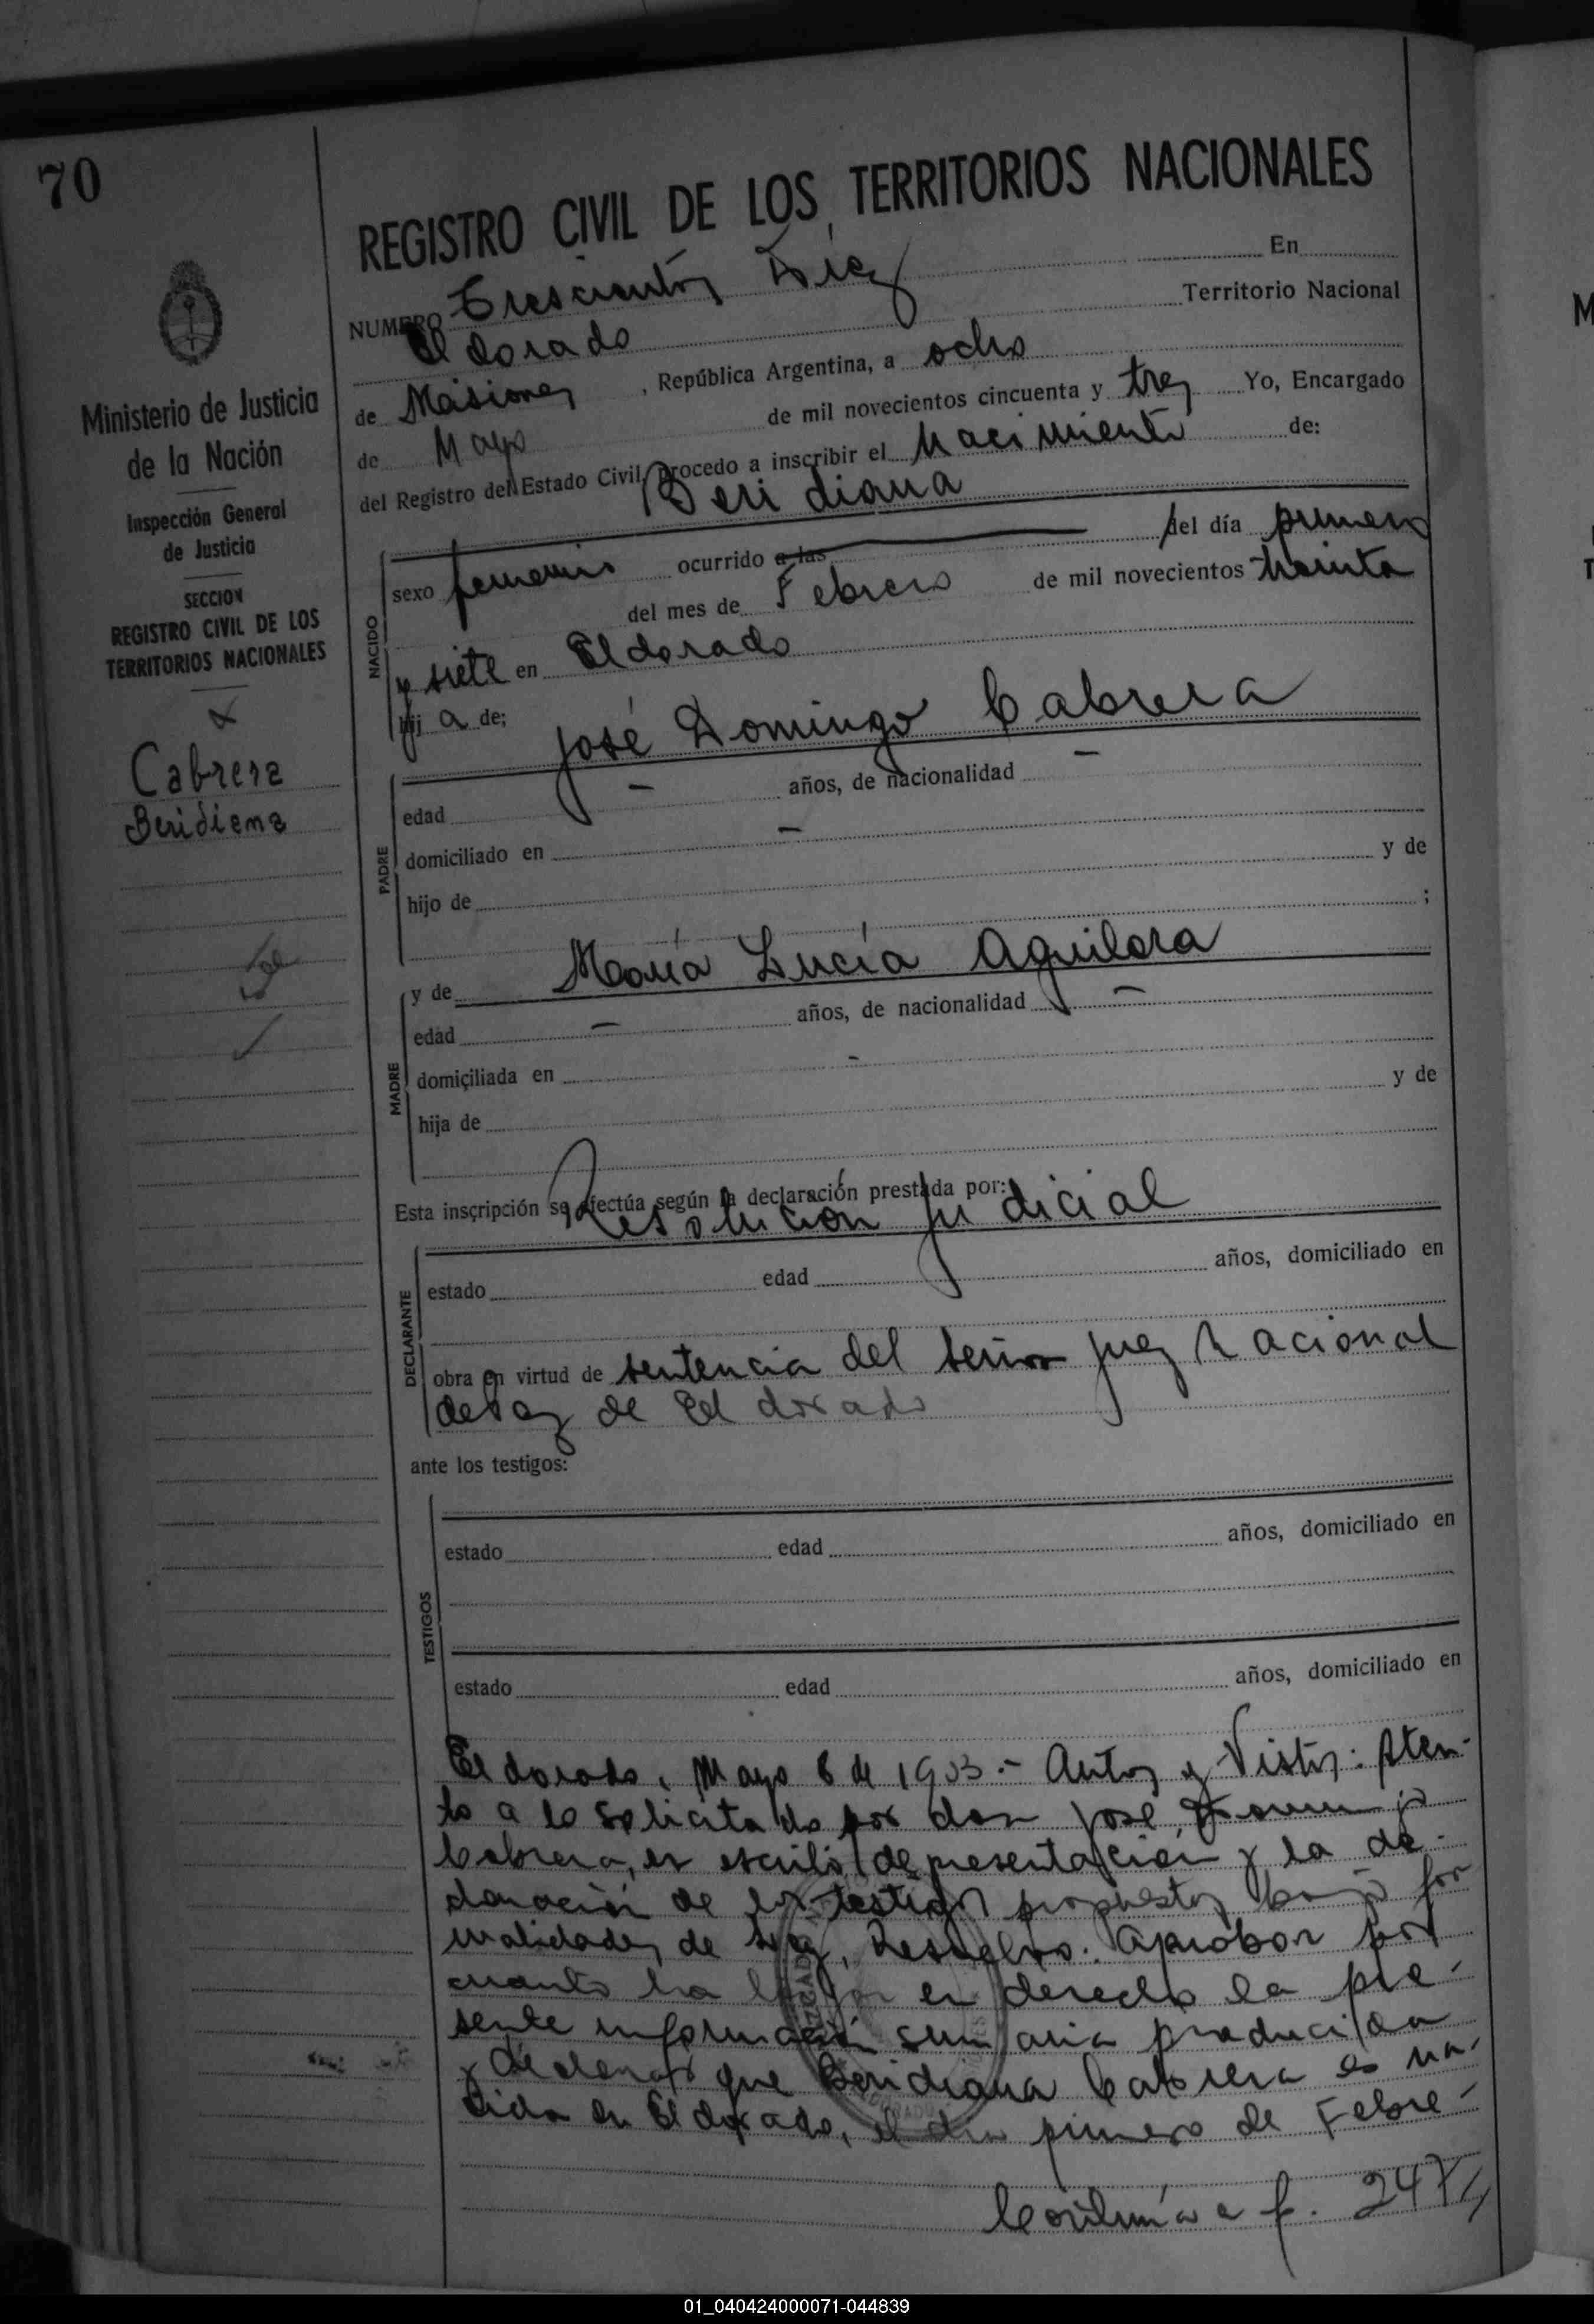 70
REGISTRO CIVIL DE LOS TERRITORIOS NACIONALES
NUMERO Trescientos Diez En
Eldorado Territorio Nacional
de Misiones, República Argentina, a ocho
de Mayo de mil novecientos cincuenta y tres Yo, Encargado
del Registro del Estado Civil, procedo a inscribir el Nacimiento de:
Beridiana
sexo femenino ocurrido a las del día primero
del mes de Febrero de mil novecientos treinta
y siete en Eldorado
hija de;
José Domingo Cabrera
edad - años, de nacionalidad -
domiciliado en -
hijo de y de
;
y de María Lucía Aguilera
edad - años, de nacionalidad -
domiciliada en -
hija de y de
Esta inscripción se efectúa según la declaración prestada por:
Resolución judicial
estado edad años, domiciliado en
obra en virtud de sentencia del señor juez Nacional
de Paz de Eldorado
ante los testigos:
estado edad años, domiciliado en
estado edad años, domiciliado en
NACIDO
PADRE
MADRE
DECLARANTE
TESTIGOS
Eldorado, Mayo 8 de 1953.- Autos y Vistos: Aten-
to a lo solicitado por don José Domingo
Cabrera, en escrito de presentación y la de-
claración de los testigos propuestos bajo for
malidades de ley, Resuelvo: Aprobar por
cuanto ha lugar en derecho la pre-
sente información sumaria producida
y declarar que Beridiana Cabrera es na-
cida en Eldorado, el día primero de Febre-
Continúa a f. 247//
Ministerio de Justicia
de la Nación
Inspección General
de Justicia
SECCION
REGISTRO CIVIL DE LOS
TERRITORIOS NACIONALES
Cabrera
Beridiana
01_040424000071-044839